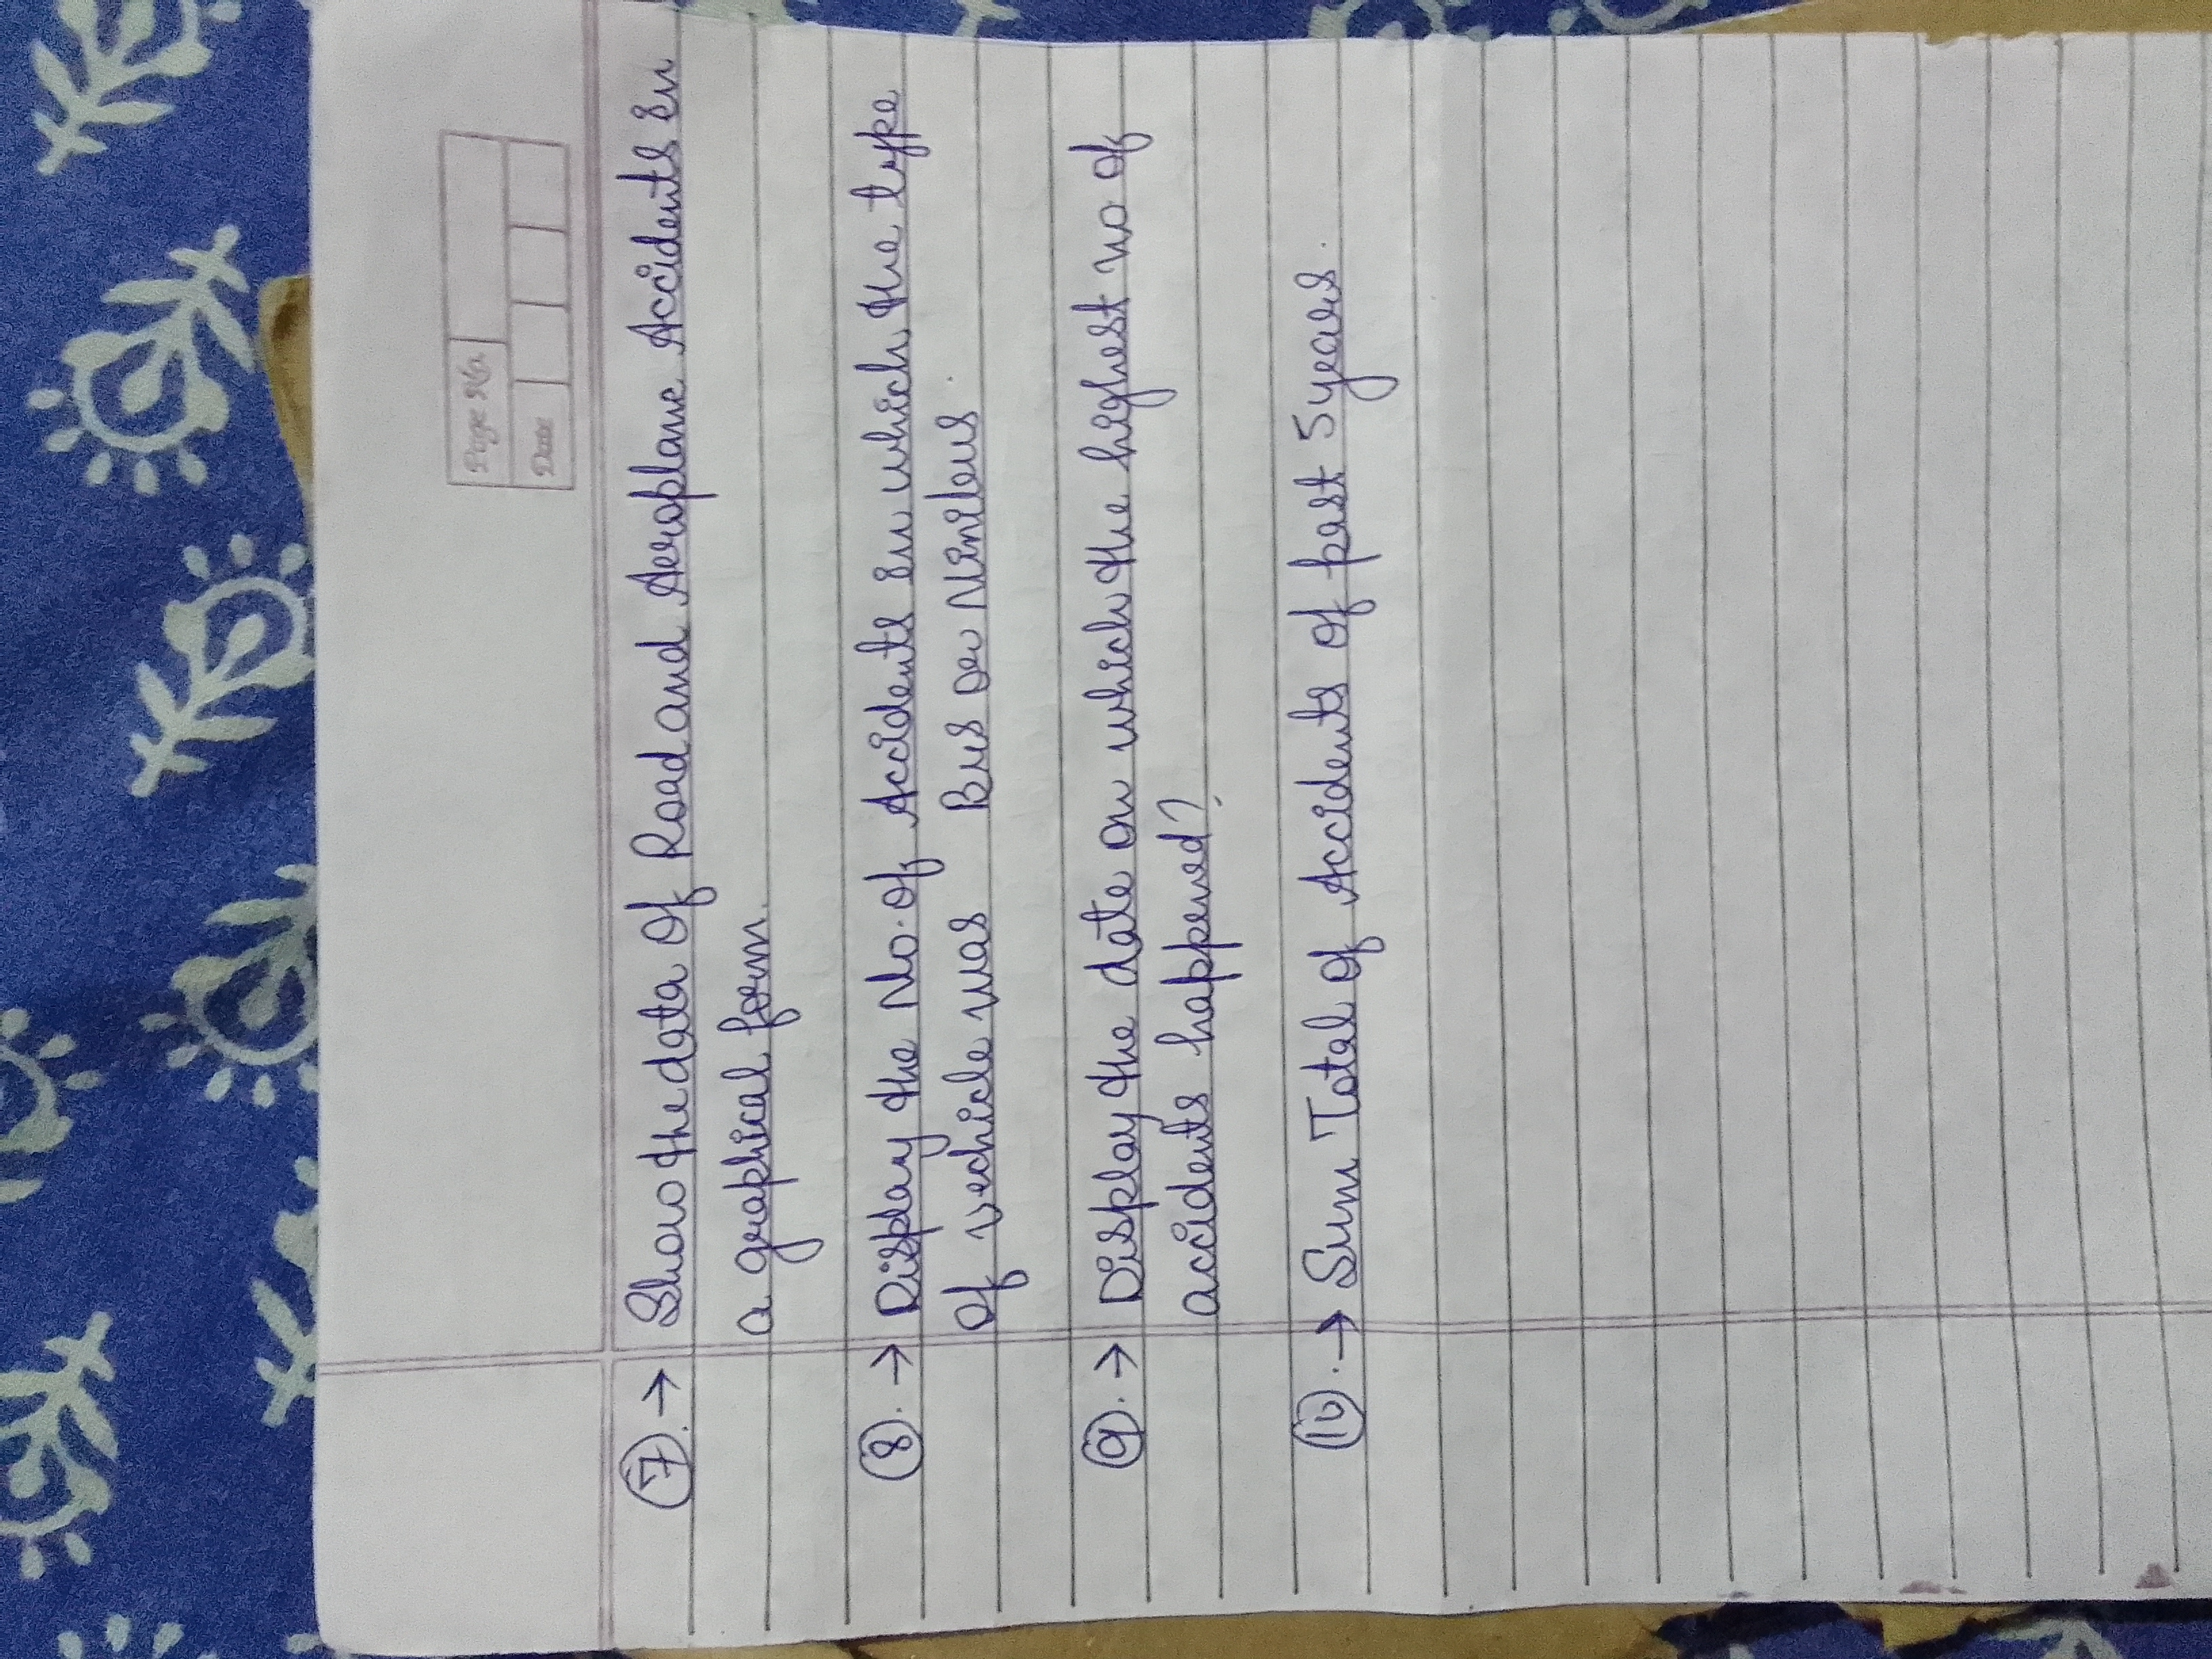 Page No.
Date
7. → Show the data Of Road and Aeroplane Accidents in
a graphical form.
8. → Display the No. of Accidents in which the type
of vechicle was Bus or Minibus.
9. → Display the date on which the highest no of
accidents happened?
10. → Sum Total of Accidents of past 5 years.